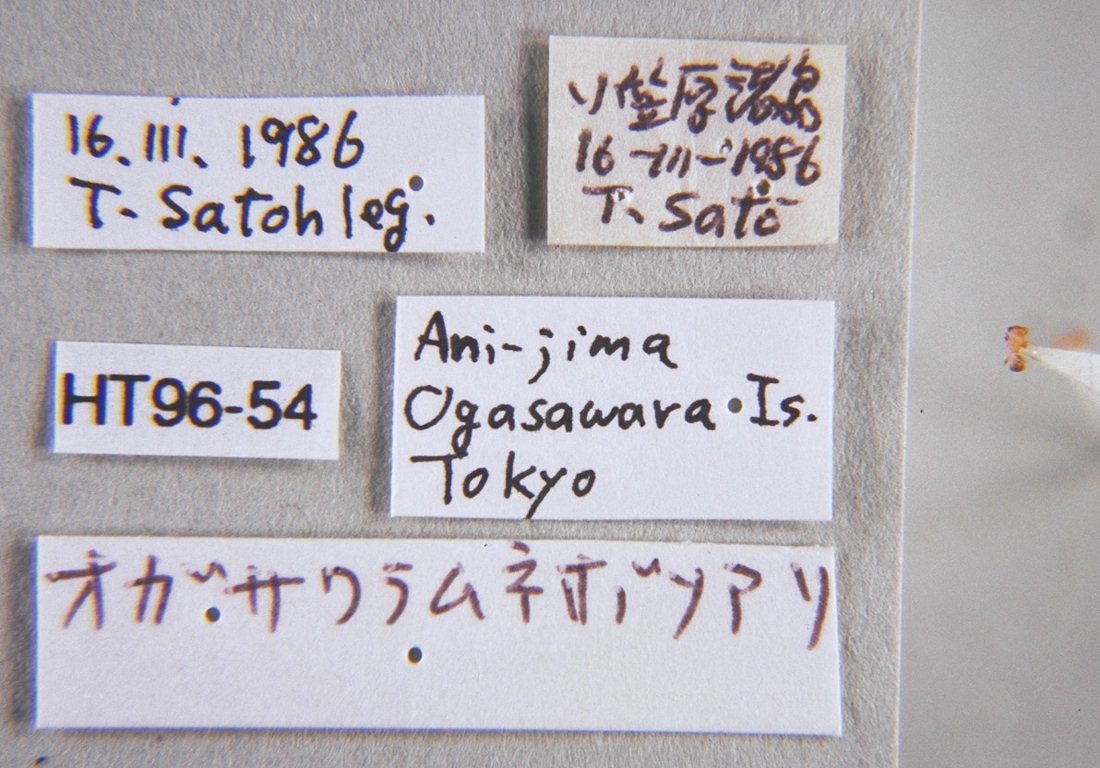 16. III. 1986
T. Satoh leg.
小笠原諸島
16-III-1986
T. Satō
HT96-54
Ani-jima
Ogasawara Is.
Tokyo
オガサワラムネボソアリ